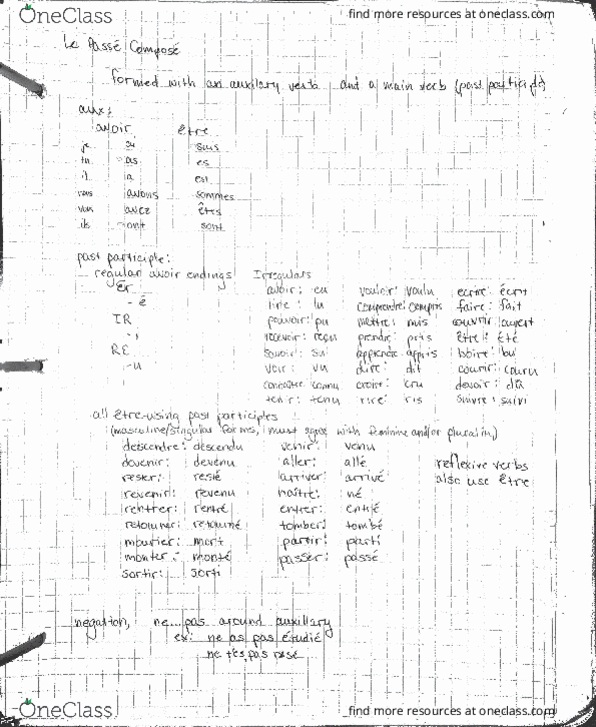 OneClass
find more resources at oneclass.com
Le Passé Composé
formed with an auxilary verb and a main verb (past participle)
aux:
avoir être
je ai suis
tu as es
il a est
nous avons sommes
vous avez êtes
ils ont sont
past participle:
regular avoir endings Irregulars
Er avoir: eu vouloir: voulu ecrire: écrit
-é lire: lu comprendre: compris faire: fait
IR pouvoir: pu mettre: mis couvrir: ouvert
-i recevoir: reçu prendre: pris être: été
RE savoir: su apprendre: appris boire: bu
-u voir: vu dire: dit courir: couru
connaître: connu croire: cru devoir: dû
tenir: tenu rire: ris suivre: suivi
all être-using past participles
(masculine/singular forms, must agree with feminine and/or plural in)
descendre: descendu venir: venu
devenir: devenu aller: allé reflexive verbs
rester: resté arriver: arrivé also use être
revenir: revenu naître: né
rentrer: rentré entrer: entré
retourner: retourné tomber: tombé
mourier: mort partir: parti
monter: monté passer: passé
sortir: sorti
negation, ne...pas around auxillary
ex: ne as pas étudié
ne t'es pas rasé
OneClass
find more resources at oneclass.com